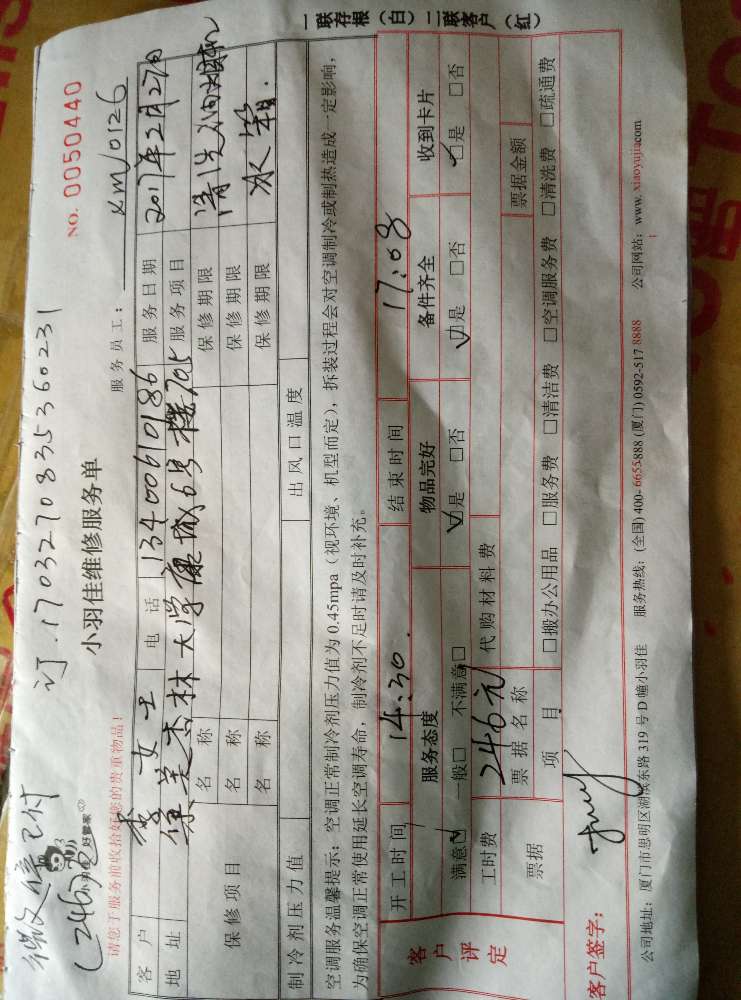 微信已付
(246元)
订.1703270835360231
小羽佳 好管家
小羽佳维修服务单
NO. 0050440
请您于服务前收拾好您的贵重物品!
服务员工: xm/0126
客户 李女士 电话 13400610186 服务日期 2017年2月27日
地址 集美杏林大学康城6号楼705 服务项目 清洗油烟机
冰箱.
保修项目 名称 保修期限
名称 保修期限
名称 保修期限
制冷剂压力值 出风口温度
空调服务温馨提示:空调正常制冷剂压力值为0.45mpa(视环境、机型而定),拆装过程会对空调制冷或制热造成一定影响,
为确保空调正常使用延长空调寿命,制冷剂不足时请及时补充。
开工时间 14:30. 结束时间 17:08
客户评定 服务态度 物品完好 备件齐全 收到卡片
满意☑ 一般□ 不满意□ ☑是 □否 ☑是 □否 ☑是 □否
工时费 246元 代购材料费
票据 票据名称 票据金额
项目 □搬办公用品 □服务费 □清洁费 □空调服务费 □清洗费 □疏通费
客户签字:
公司地址:厦门市思明区湖滨东路319号D幢小羽佳 服务热线:(全国)400-6655-888 (厦门)0592-517 8888 公司网站:www.xiaoyujia.com
一联存根(白)二联客户(红)